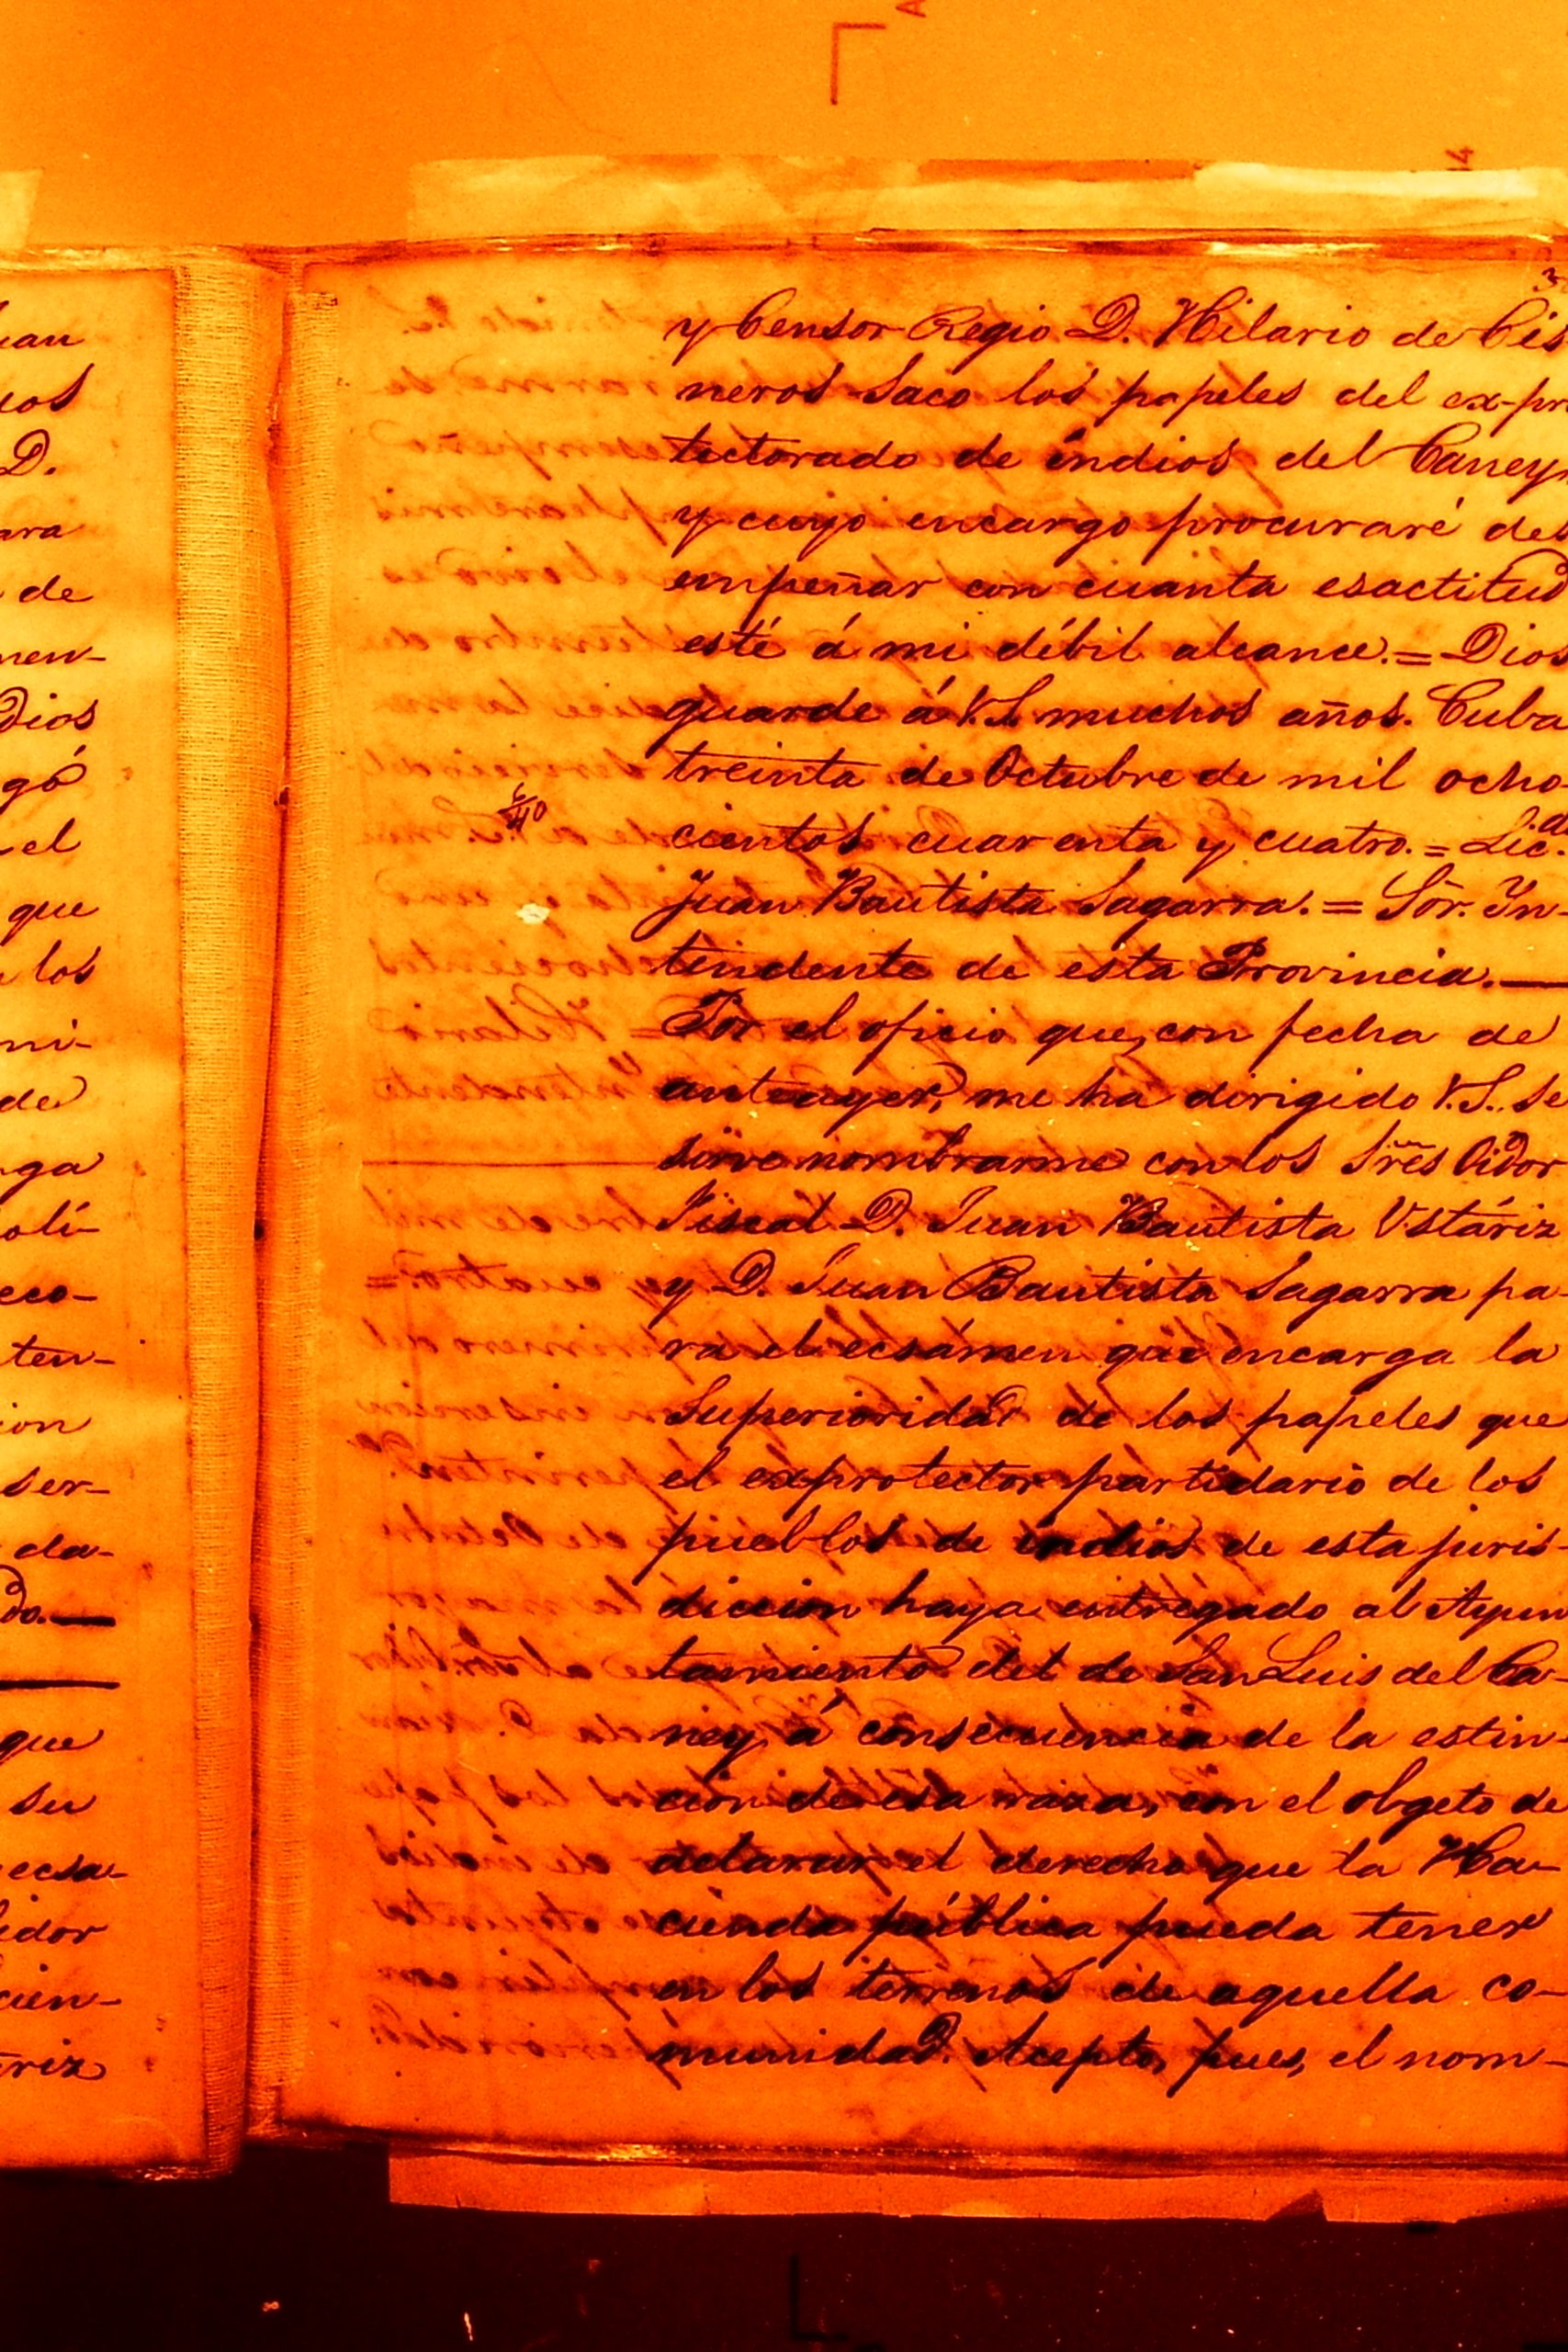 uan
uos
D.
ara
de
men-
dios
gó
el
que
los
mi-
de
nga
olí-
eco-
ten-
ion
ser-
da-
do.—
que
su
ecsa-
idor
cien-
triz
3
y Censor Regio D. Hilario de Cis-
neros Saco los papeles del ex-pr
tectorado de indios del Caney,
y cuyo encargo procuraré des
empeñar con cuanta esactitud
esté á mi débil alcance.= Dios
guarde á V.S. muchos años. Cuba
treinta de Octubre de mil ocho-
cientos cuarenta y cuatro.= Lic.do
Juan Bautista Sagarra.= Sõr. In-
tendente de esta Provincia.—
Por el oficio que, con fecha de
anteayer, me ha dirigido V.S. se
sirve nombrarme con los Sres Oidor
Fiscal D. Juan Bautista Ustáriz
y D. Juan Bautista Sagarra pa-
ra el ecsámen que encarga la
Superioridad de los papeles que
el exprotector partidario de los
pueblos de indios de esta juris-
diccion haya entregado al Ayun
tamiento del de San Luis del Ca-
ney, á consecuencia de la estin-
cion de esa raza, con el obgeto de
aclarar el derecho que la Ha-
cienda pública pueda tener
en los terrenos de aquella co-
munidad. Acepto, pues, el nom-